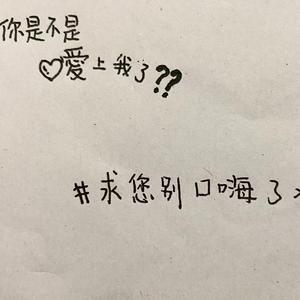 你是不是
♡愛上我了??
#求您别口嗨了